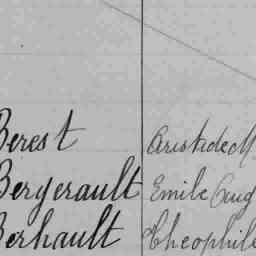 Berest Aristide M
Bergerault Emile Aug
Berhault Théophile